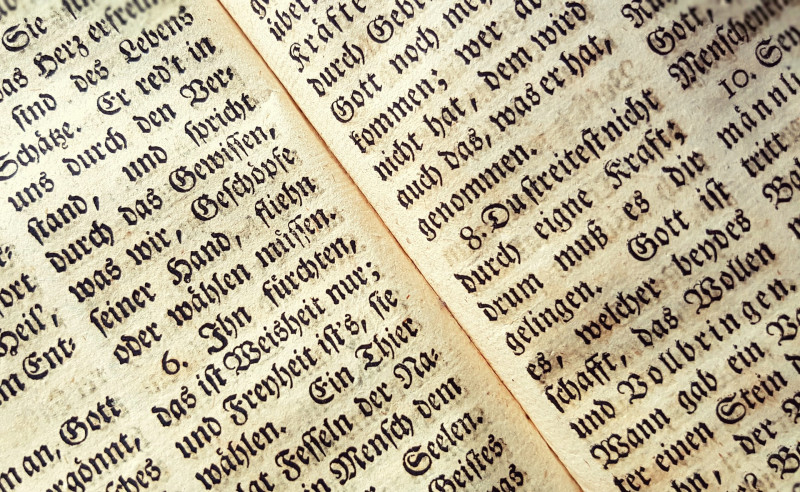 Sie
das Herz erfreun
sind des Lebens
Schätze. Er red't in
uns durch den Ver-
stand, und spricht
durch das Gewissen,
was wir, Geschöpfe
seiner Hand, fliehn
oder wählen müssen.
6. Ihn fürchten,
das ist Weisheit nur;
und Freyheit ist's, sie
wählen. Ein Thier
Fesseln der Na-
Mensch dem
Seelen.
Geistes
Heil,
Ent-
an, Gott
Kräfte
durch Gebe
Gott noch
kommen; wer
nicht hat, dem wird
auch das, was er hat,
genommen.
8. Du streitest nicht
durch eigne Kraft;
drum muß es dir
gelingen. Gott ist
es, welcher beydes
schafft, das Wollen
und Vollbringen.
Wann gab ein
einen Stein
der
Gott,
Menschen
10.
männli
tritt